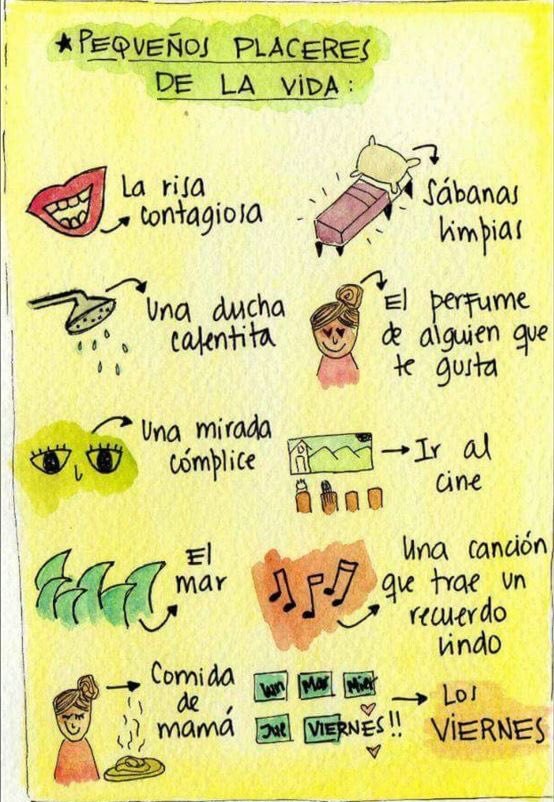 ★PEQUEÑOS PLACERES
DE LA VIDA:
La risa
contagiosa
Sábanas
limpias
Una ducha
calentita
El perfume
de alguien que
te gusta
Una mirada
cómplice
Ir al
cine
El
mar
Una canción
que trae un
recuerdo
lindo
Comida
de
mamá
Lun Mar Mier
Jue VIERNES!!
Los
VIERNES